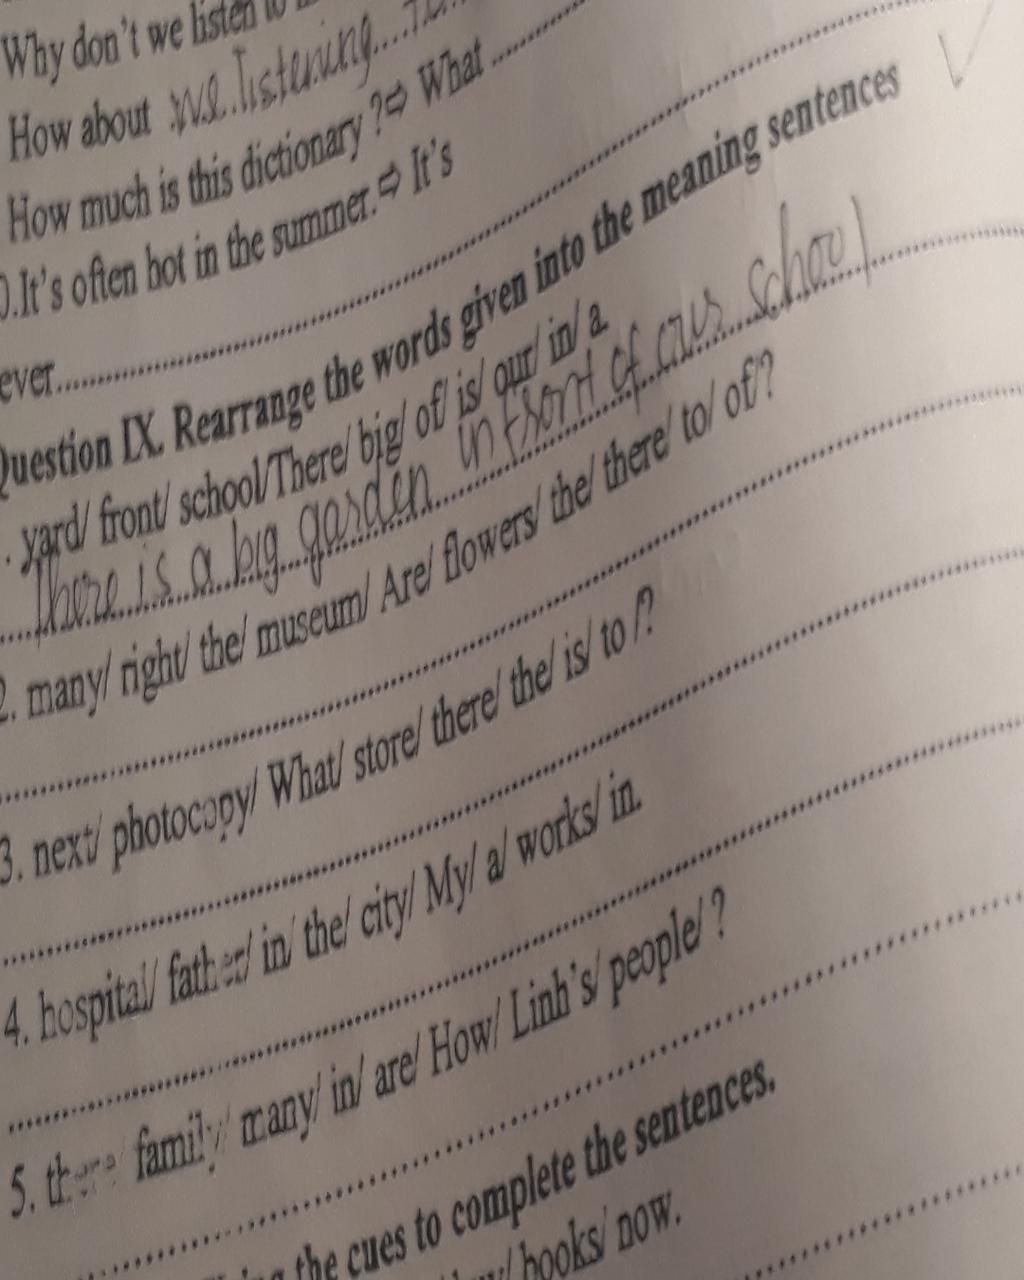 Why don't we listen to
How about we listening
How much is this dictionary ?⇨ What ..........
0.It's often hot in the summer.⇨ It's
ever..........
Question IX. Rearrange the words given into the meaning sentences
. yard/ front/ school/There/ big/ of/ is/ our/ in/ a
There is a big garden in front of our school
2. many/ right/ the/ museum/ Are/ flowers/ the/ there/ to/ of/?
3. next/ photocopy/ What/ store/ there/ the/ is/ to /?
4. hospital/ father/ in/ the/ city/ My/ a/ works/ in.
5. there/ family/ many/ in/ are/ How/ Linh's/ people/ ?
the cues to complete the sentences.
books/ now.